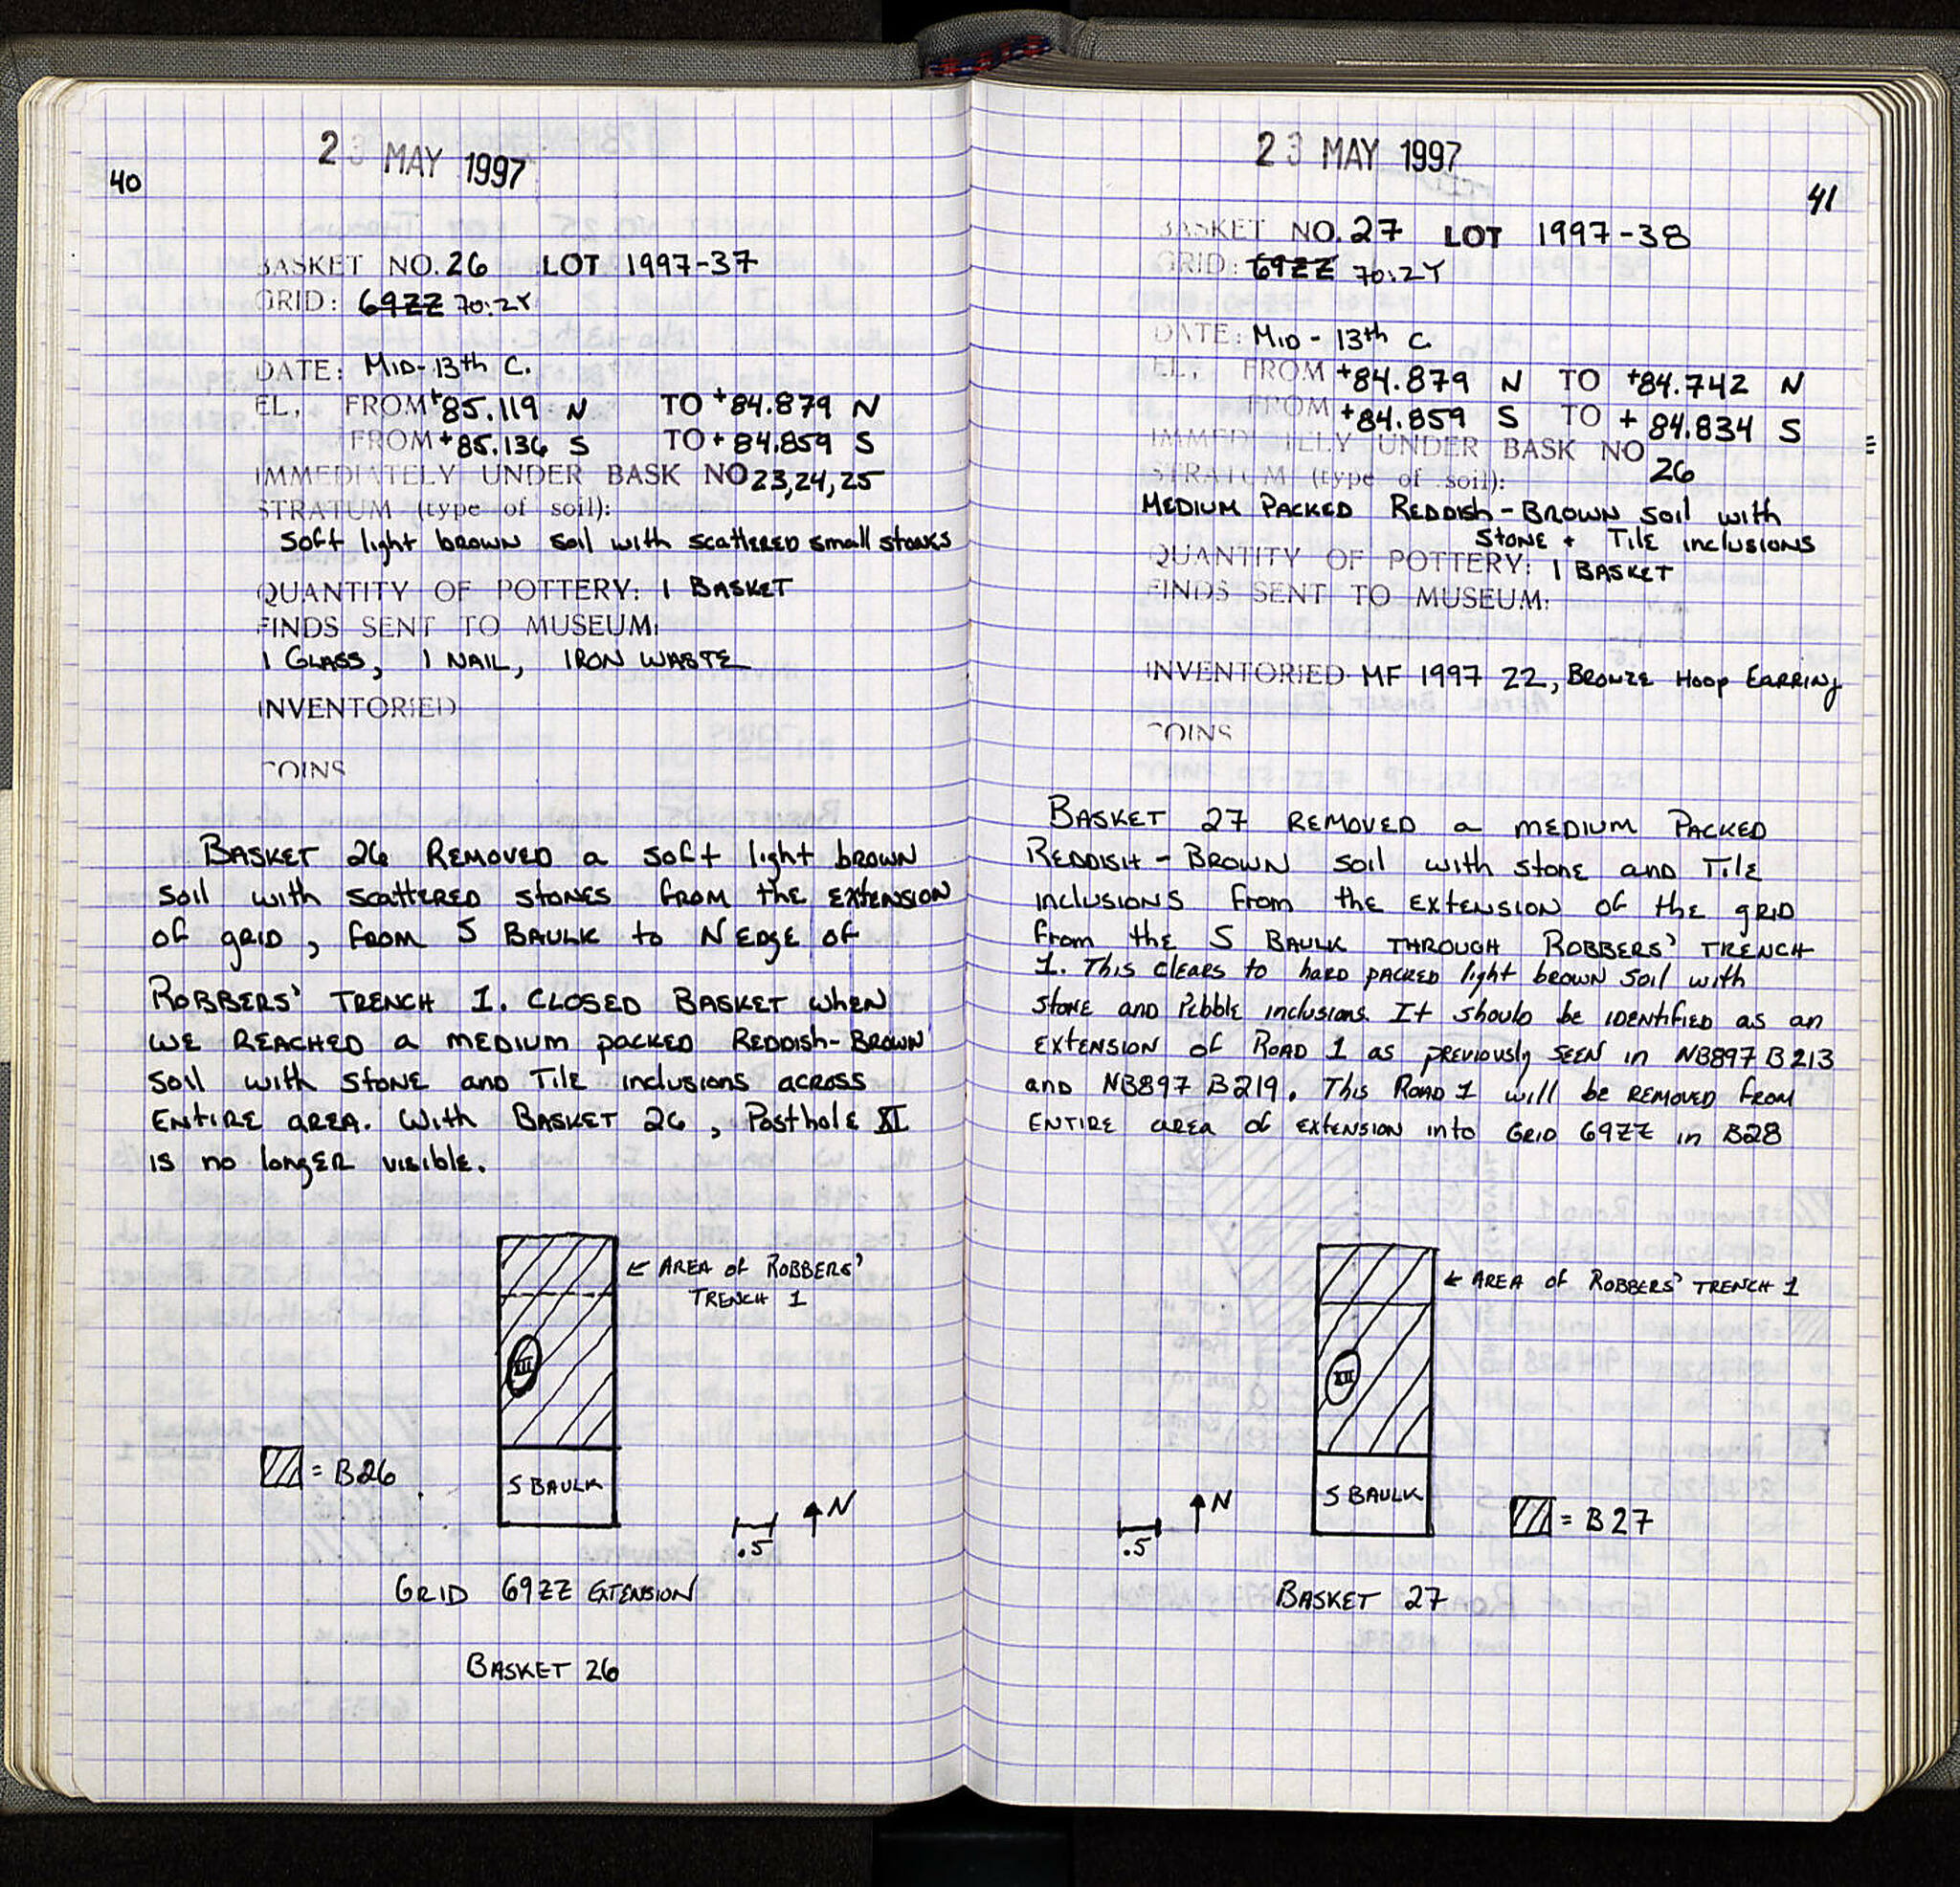 23 MAY 1997
40
BASKET NO. 26 LOT 1997-37
GRID: 69ZZ 70:2Y
DATE: MID-13th C.
EL. FROM +85.119 N TO +84.879 N
FROM +85.136 S TO + 84.859 S
IMMEDIATELY UNDER BASK NO 23,24,25
STRATUM (type of soil):
soft light brown soil with scattered small stones
QUANTITY OF POTTERY: 1 BASKET
FINDS SENT TO MUSEUM:
1 GLASS, 1 NAIL, IRON WASTE
INVENTORIED
COINS
BASKET 26 REMOVED a soft light brown
soil with scattered stones from the extension
of grid, from S BAULK to N EDGE OF
ROBBERS' TRENCH 1. CLOSED BASKET when
we REACHED a MEDIUM packed REDDish-BROWN
soil with stone and Tile inclusions across
ENTIRE area. With BASKET 26, Posthole XI
is no longer visible.
← AREA of ROBBERS'
TRENCH 1
XII
= B26
S BAULK
.5
N
GRID 69ZZ EXTENSION
BASKET 26
23 MAY 1997
41
BASKET NO. 27 LOT 1997-38
GRID: 69ZZ 70:2Y
DATE: MID-13th C.
EL. FROM +84.879 N TO +84.742 N
FROM +84.859 S TO + 84.834 S
IMMEDIATELY UNDER BASK NO
26
STRATUM (type of soil):
MEDIUM PACKED REDDish-BROWN soil with
STONE + Tile inclusions
QUANTITY OF POTTERY: 1 BASKET
FINDS SENT TO MUSEUM:
INVENTORIED MF 1997 22, BRONZE Hoop EARRING
COINS
BASKET 27 REMOVED a MEDIUM PACKED
REDDISH-BROWN soil with stone and Tile
inclusions from the EXTENSION of the grid
from the S BAULK THROUGH ROBBERS' TRENCH
1. This clears to hard packed light brown soil with
stone and Pebble inclusions. It should be IDENTIFIED as an
EXTENSION of ROAD 1 as previously SEEN in NB897 B213
and NB897 B219. This ROAD 1 will be REMOVED from
ENTIRE area of extension into GRID 69ZZ in B28
← AREA of ROBBERS' TRENCH 1
XII
S BAULK
.5
N
= B27
BASKET 27